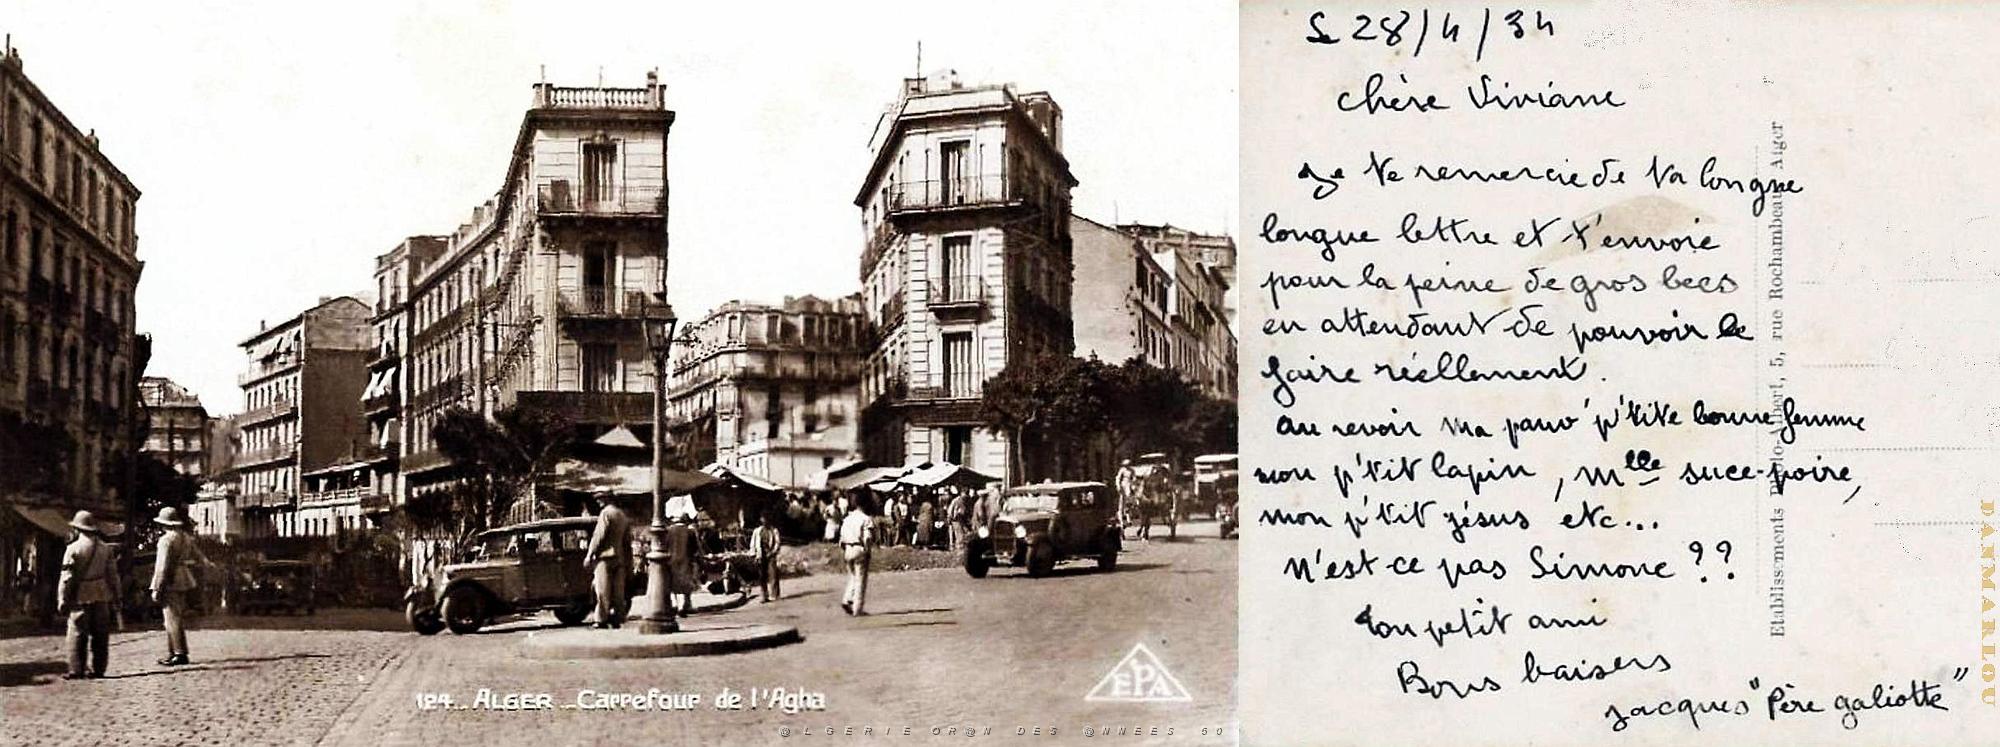 124_ ALGER _ Carrefour de l'Agha
EPA
@LGERIE OR@N DES @NNEES 50
Le 28/4/34
chère Viviane
Je te remercie de ta longue
longue lettre et t'envoie
pour la peine de gros becs
en attendant de pouvoir le
faire réellement.
au revoir ma pauv' p'tite bonne femme
mon p'tit lapin, Mlle suce-poire,
mon p'tit jésus etc...
N'est-ce pas Simone ??
Ton petit ami
Bons baisers
Jacques "Père galiotte"
Etablissements Albert, 5, rue Rochambeau Alger
DAFMARLOU